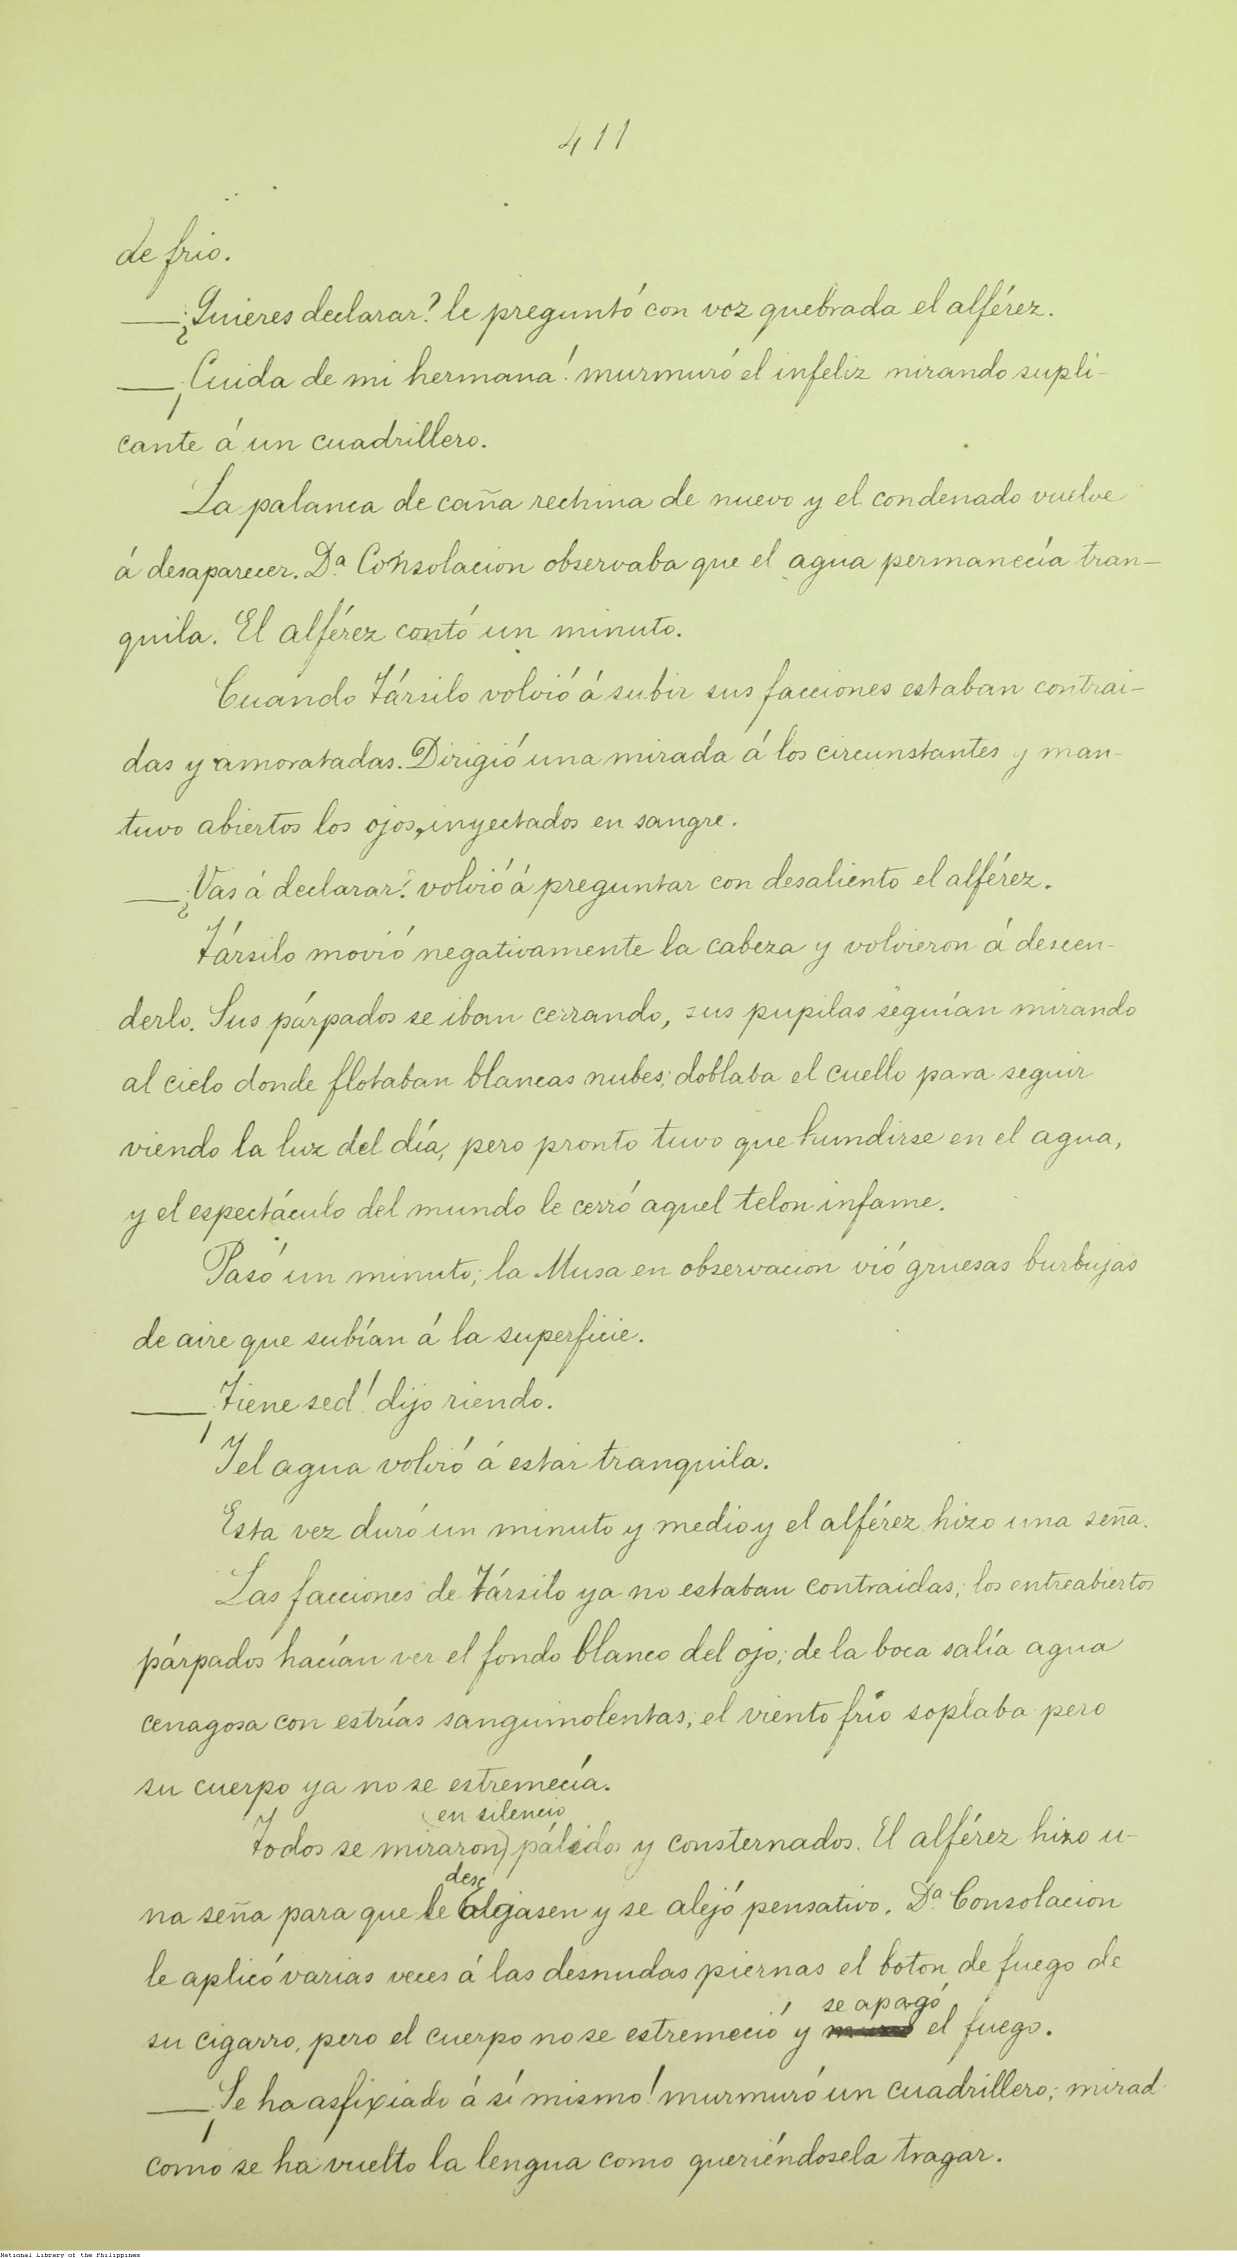 411
de frio.
—¿Quieres declarar? le preguntó con voz quebrada el alférez.
—¡Cuida de mi hermana! murmuró el infeliz mirando supli-
cante á un cuadrillero.
La palanca de caña rechina de nuevo y el condenado vuelve
á desaparecer. Dª Consolacion observaba que el agua permanecía tran-
quila. El alférez contó un minuto.
Cuando Társilo volvió á subir sus facciones estaban contrai-
das y amoratadas. Dirigió una mirada á los circunstantes y man-
tuvo abiertos los ojos, inyectados en sangre.
—¿Vas á declarar? volvió á preguntar con desaliento el alférez.
Társilo movió negativamente la cabeza y volvieron á descen-
derlo. Sus párpados se iban cerrando, sus pupilas seguían mirando
al cielo donde flotaban blancas nubes; doblaba el cuello para seguir
viendo la luz del día, pero pronto tuvo que hundirse en el agua,
y el espectáculo del mundo le cerró aquel telon infame.
Pasó un minuto; la Musa en observacion vió gruesas burbujas
de aire que subían á la superficie.
—¡Tiene sed! dijo riendo.
Y el agua volvió á estar tranquila.
Esta vez duró un minuto y medio y el alférez hizo una seña.
Las facciones de Társilo ya no estaban contraidas; los entreabiertos
párpados hacían ver el fondo blanco del ojo; de la boca salía agua
cenagosa con estrías sanguinolentas; el viento frío soplaba pero
su cuerpo ya no se estremecía.
en silencio
Todos se miraron, pálidos y consternados. El alférez hizo u-
desc
na seña para que le olgasen y se alejó pensativo. Dª Consolacion
le aplicó varias veces á las desnudas piernas el boton de fuego de
se apagó
su cigarro, pero el cuerpo no se estremeció y el fuego.
—¡Se ha asfixiado á sí mismo! murmuró un cuadrillero; mirad
como se ha vuelto la lengua como queriéndosela tragar.
National Library of the Philippines